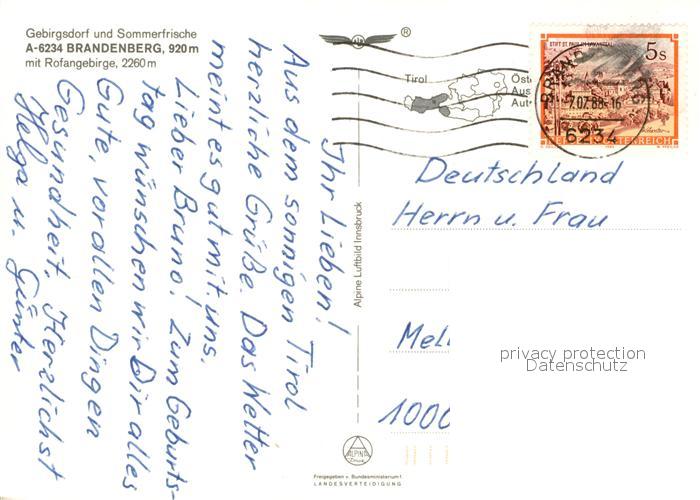 Gebirgsdorf und Sommerfrische
A-6234 BRANDENBERG, 920 m
mit Rofangebirge, 2260 m
Ihr Lieben!
Aus dem sonnigen Tirol
herzliche Grüße. Das Wetter
meint es gut mit uns.
Lieber Bruno! Zum Geburts-
tag wünschen wir Dir alles
Gute, vor allen Dingen
Gesundheit. Herzlichst
Helga u. Günter
Alpine Luftbild Innsbruck
ALPINE
Freigegeben v. Bundesministerium f.
LANDESVERTEIDIGUNG
®
Tirol
Öst
Aus
Aut
STIFT ST. PAUL IM LAVANTTAL
5 S
7.07.88-16
6234
REPUBLIK ÖSTERREICH
Deutschland
Herrn u. Frau
Mell
1000
privacy protection
Datenschutz